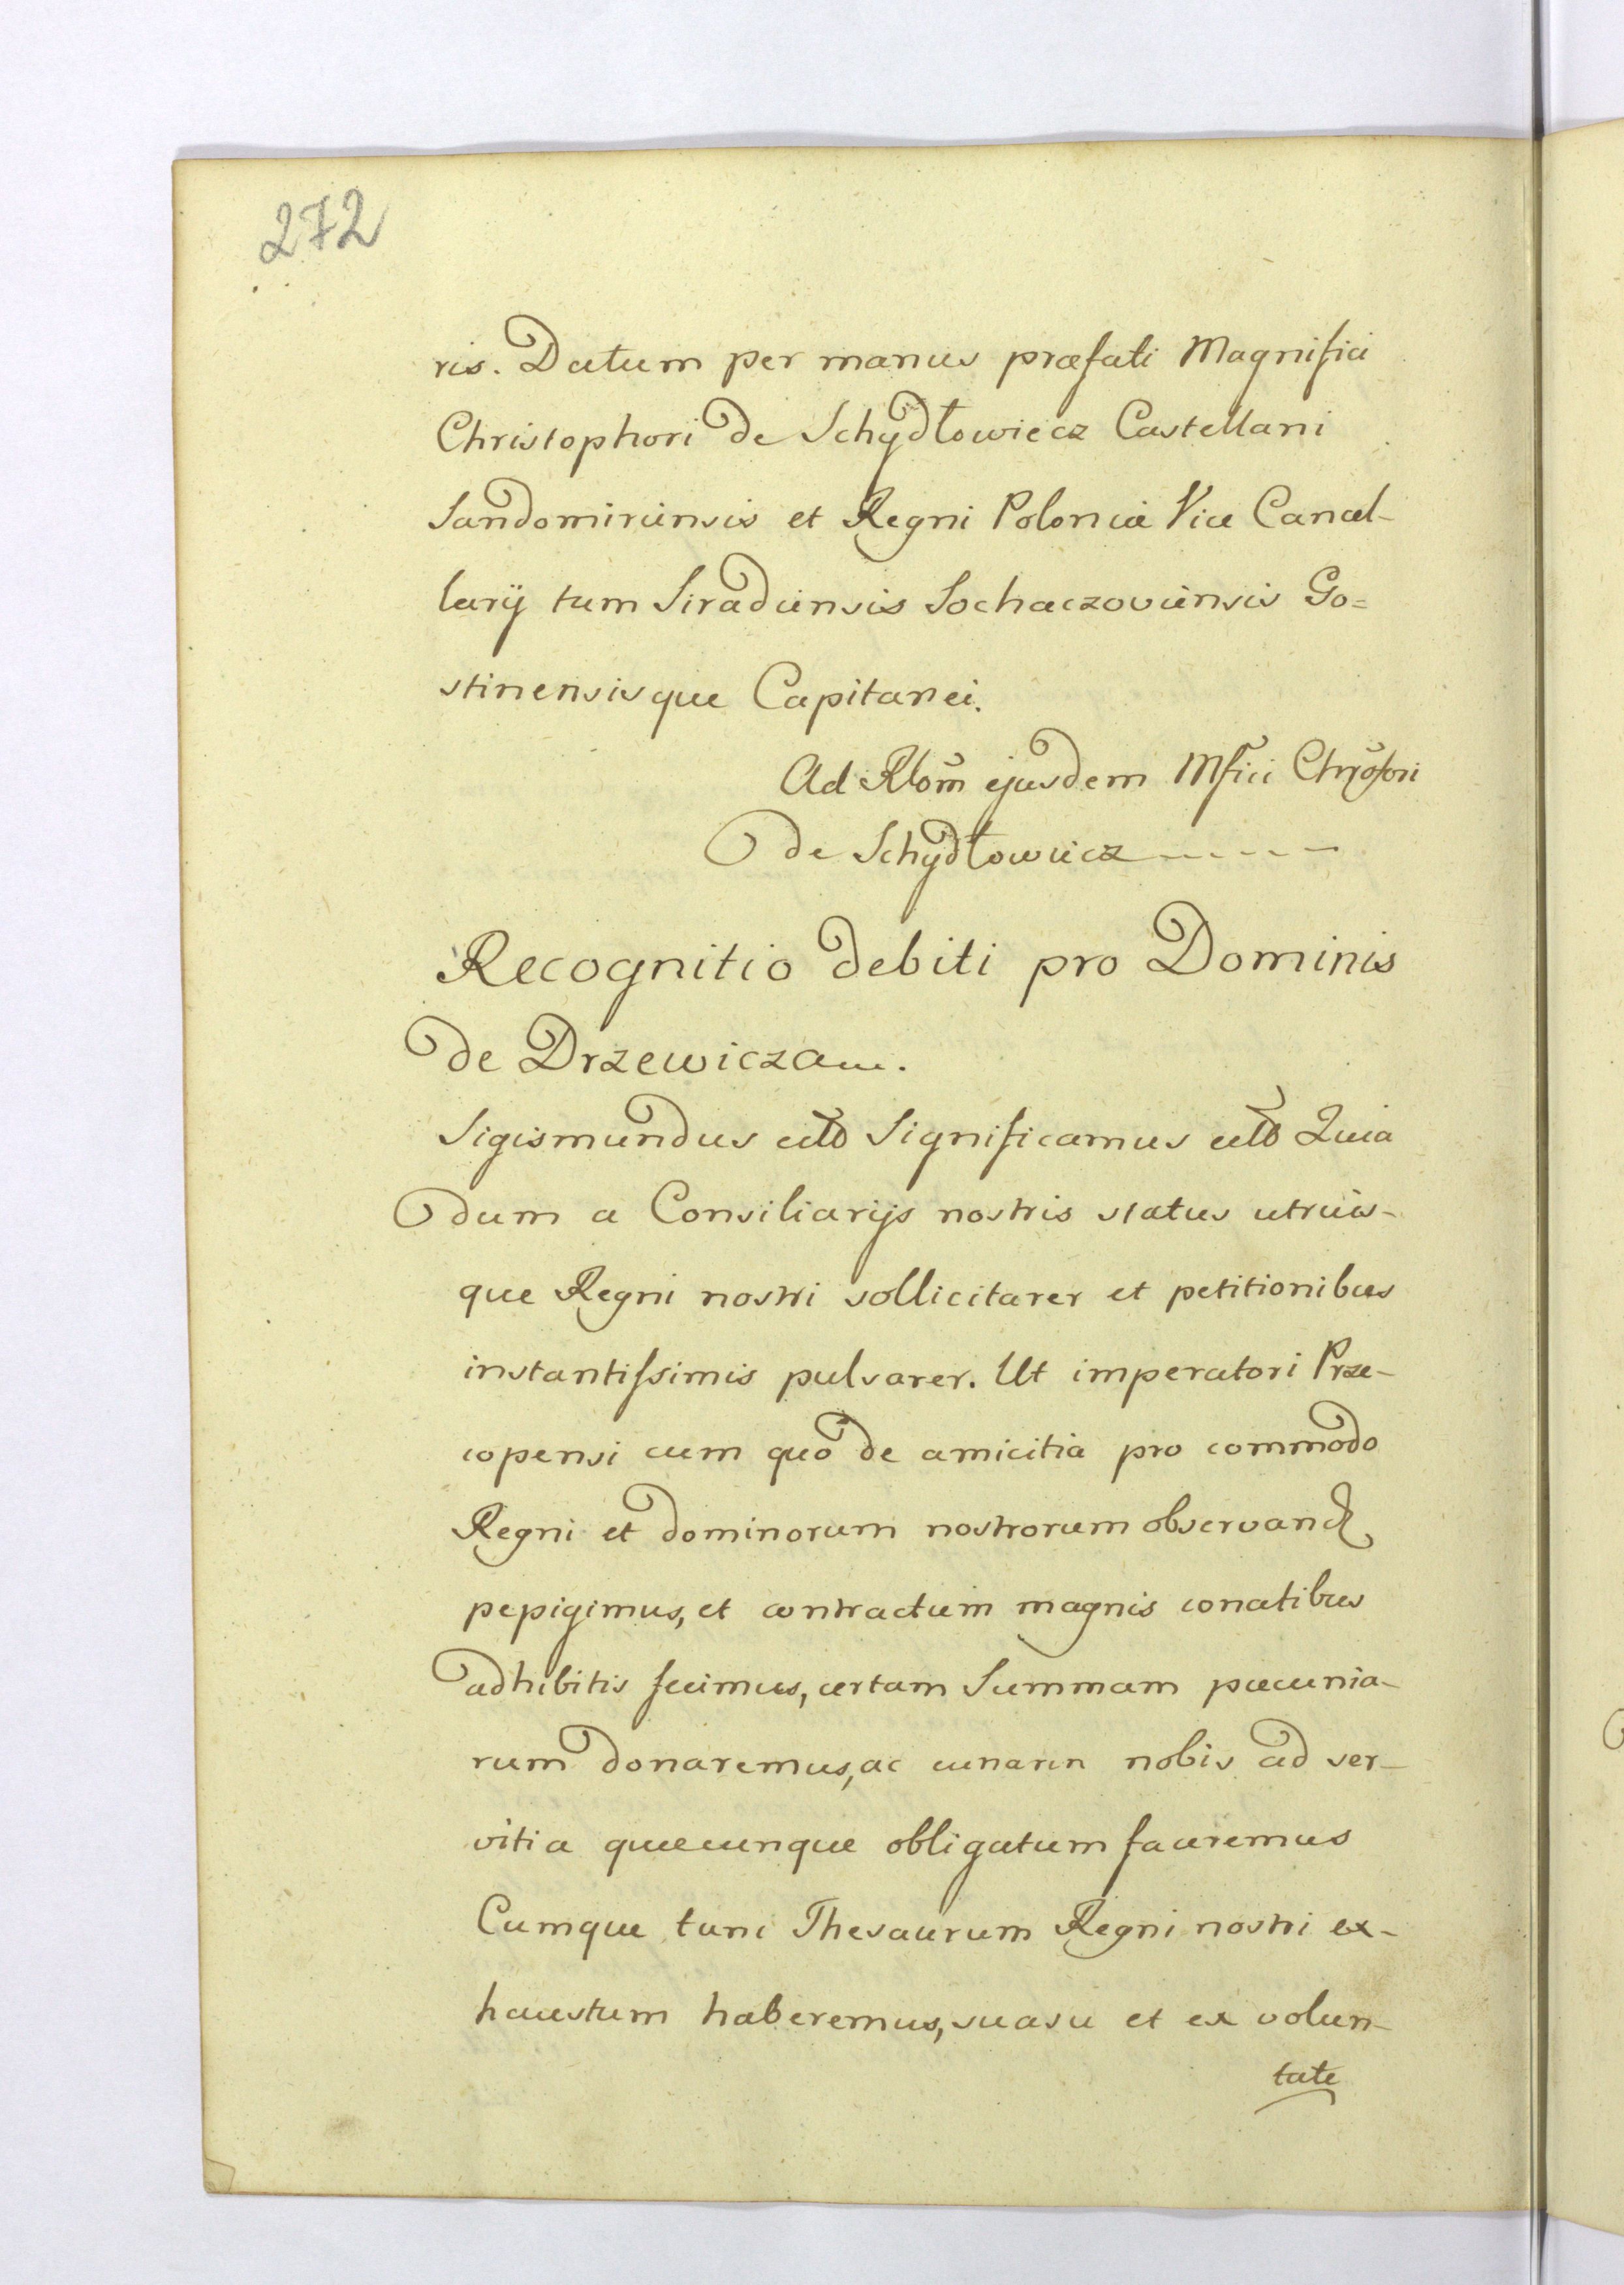 272
ris. Datum per manus præfati Magnifici
Christophori de Schydłowiecz Castellani
Sandomiriensis et Regni Poloniæ Vice Cancel-
larij tum Siradiensis Sochaczoviensis Go=
stinensisque Capitanei.
Ad Rlom̄ ejusdem Mfici Chrjofori
de Schydłowiecz
Recognitio debiti pro Dominis
de Drzewicza
Sigismundus Significamus Quia
dum a Consiliarijs nostris status utrius-
que Regni nostri sollicitarer et petitionibus
instantissimis pulsarer. Ut imperatori Prze-
copensi cum quo de amicitia pro commodo
Regni et dominorum nostrorum observand
pepigimus, et contractum magnis conatibus
adhibitis fecimus, certam Summam pæcunia-
rum donaremus, ac nobis ad ser-
vitia quæcunque obligatum faceremus
Cumque tunc Thesaurum Regni nostri ex-
haustum haberemus, suasu et ex volun-
tate